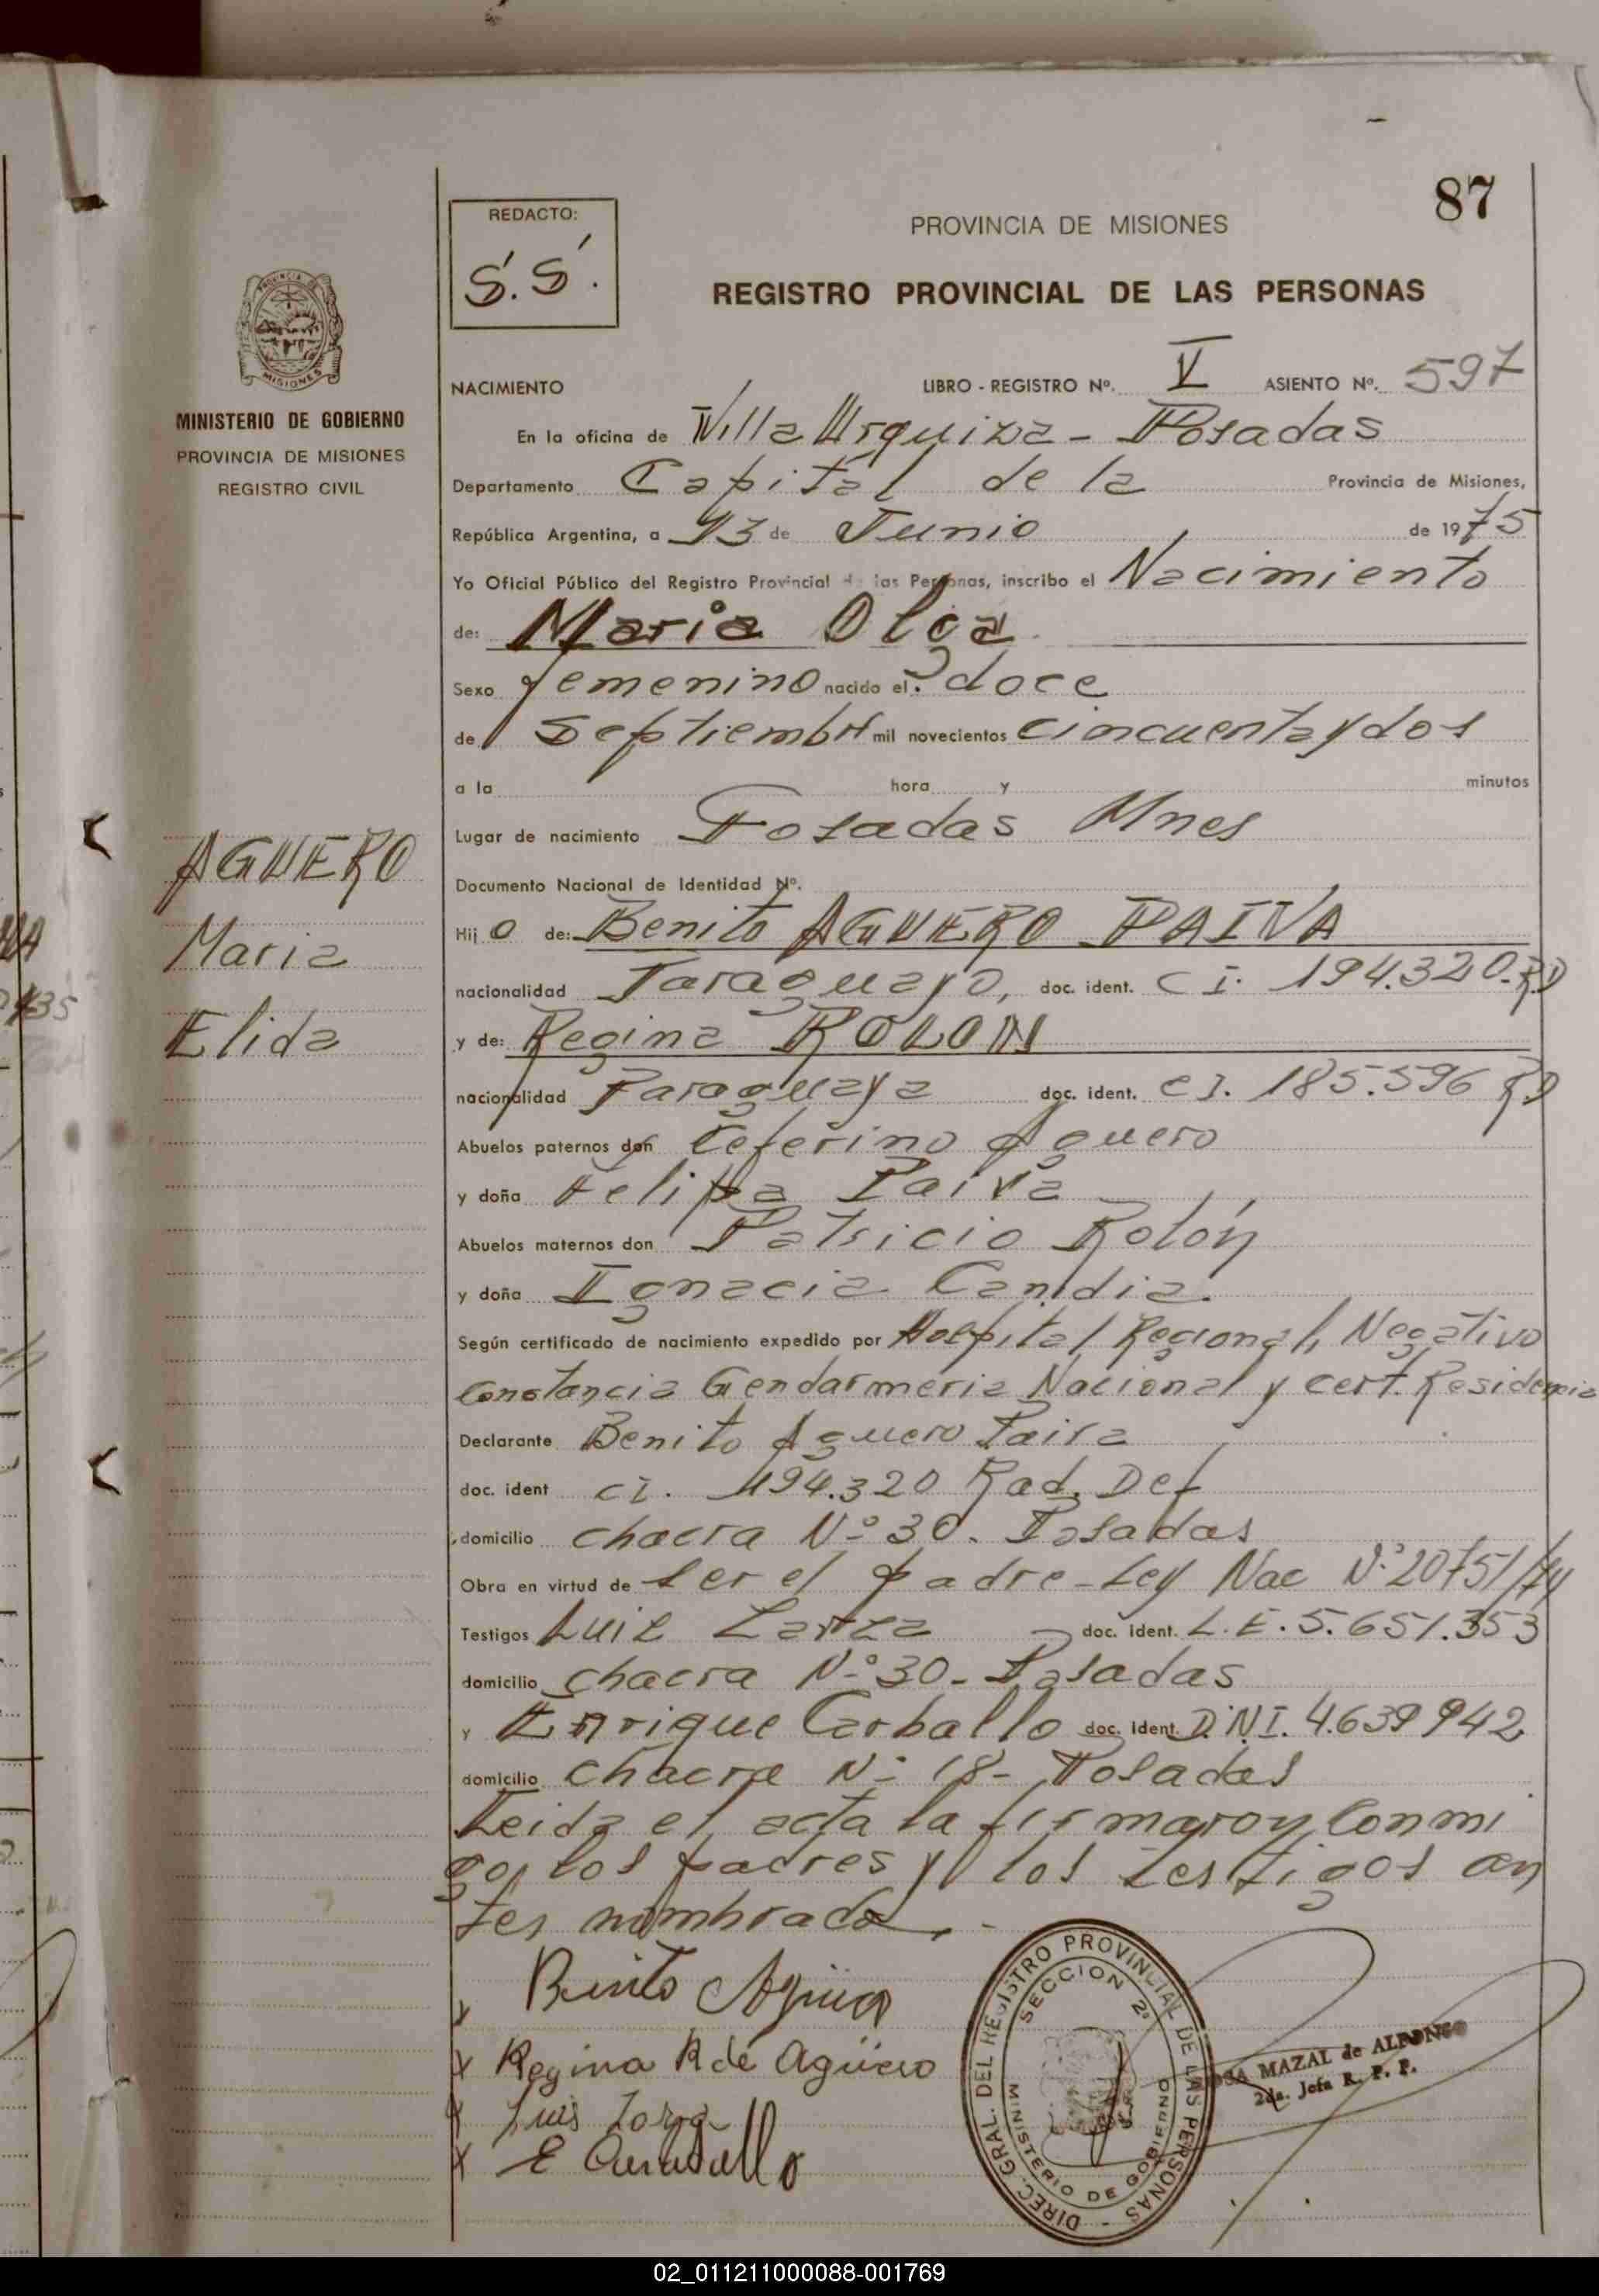 87
REDACTO:
S. S.
PROVINCIA DE MISIONES
REGISTRO PROVINCIAL DE LAS PERSONAS
PROVINCIA DE MISIONES
MINISTERIO DE GOBIERNO
PROVINCIA DE MISIONES
REGISTRO CIVIL
NACIMIENTO LIBRO - REGISTRO Nº. V ASIENTO Nº. 597
En la oficina de Villa Urquiza - Posadas
Departamento Capital de la Provincia de Misiones,
República Argentina, a 13 de Junio de 1975
Yo Oficial Público del Registro Provincial de las Personas, inscribo el Nacimiento
de: Maria Olga
Sexo femenino nacido el doce
de Septiembre mil novecientos cincuenta y dos
a la hora y minutos
Lugar de nacimiento Posadas Mnes
Documento Nacional de Identidad Nº.
Hij o de: Benito AGUERO PAIVA
nacionalidad Paraguayo, doc. ident. C I. 194.320-R.D
y de: Regina ROLON
nacionalidad Paraguaya doc. ident. C I. 185.596 R D
Abuelos paternos don Ceferino Aguero
y doña Felipa Paiva
Abuelos maternos don Patricio Rolón
y doña Ignacia Candia.
Según certificado de nacimiento expedido por Hospital Regional, Negativo
Constancia Gendarmeria Nacional y cert. Residencia
Declarante Benito Aguero Paiva
doc. ident CI. 194.320 Rad. Def
domicilio chacra Nº 30. Posadas
Obra en virtud de ser el padre - Ley Nac Nº 20751/74
Testigos Luis Zarza doc. ident. L.E. 5.651.353
domicilio chacra Nº 30 - Posadas
y Enrique Carballo doc. Ident. D.N.I. 4.639942
domicilio chacra Nº 18 - Posadas
Leida el acta la firmaron conmi
go, los padres y los testigos an
tes nombrado.-
AGUERO
Maria
Elida
x Benito Agüero
x Regina R de Agüero
x Luis Zarza
x E Carballo
DIREC. GRAL. DEL REGISTRO PROVINCIAL DE LAS PERSONAS -
SECCION 2ª
MINISTERIO DE GOBIERNO
MAZAL de ALFONSO
2da. Jefa R. P. P.
02_011211000088-001769